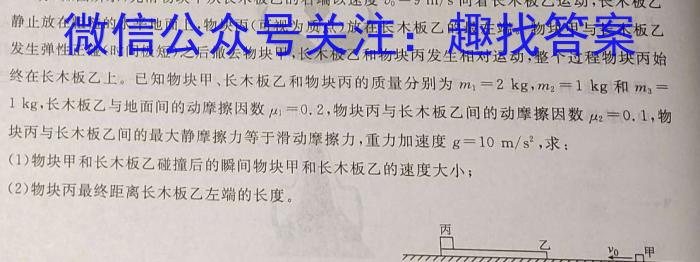 右端以速度v₀=9 m/s向着长木板乙运动,长木板乙
静止放在
微信公众号关注:趣找答案
发生弹性 之后撤去物块甲,长木板乙和物块丙发生相对运动,整个过程物块丙始
终在长木板乙上。已知物块甲、长木板乙和物块丙的质量分别为m₁=2 kg,m₂=1 kg和m₃=
1 kg,长木板乙与地面间的动摩擦因数μ₁=0.2,物块丙与长木板乙间的动摩擦因数μ₂=0.1,物
块丙与长木板乙间的最大静摩擦力等于滑动摩擦力,重力加速度g=10 m/s²,求:
(1)物块甲和长木板乙碰撞后的瞬间物块甲和长木板乙的速度大小;
(2)物块丙最终距离长木板乙左端的长度。
丙
乙
v₀
甲